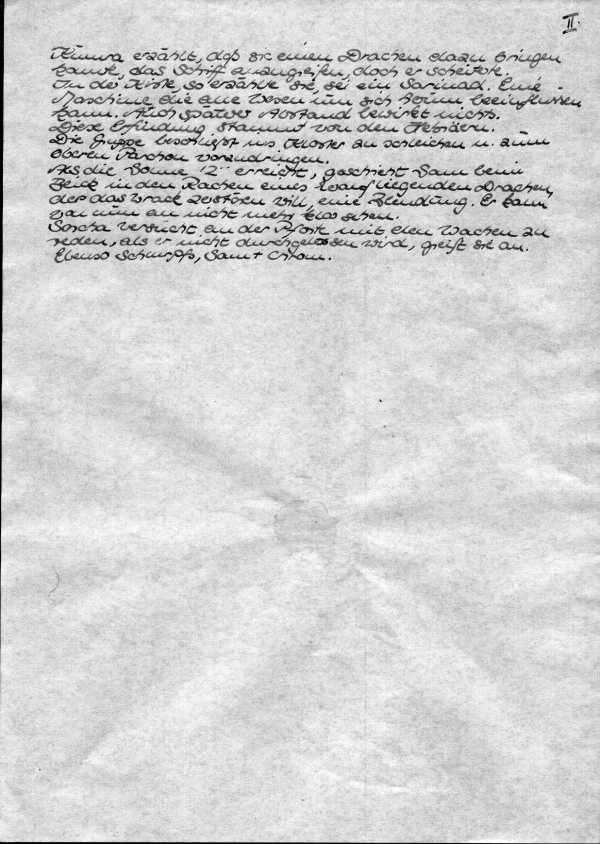 II.
erzählt, daß sie einen Drachen dazu bringen
konnte, das Schiff anzugreifen, doch er scheiterte.
In der Kiste, so erzählte sie, sei ein Sarinad. Eine
Maschine die alle Wesen um sich herum beeinflussen
kann. Auch Abstand bewirkt nichts.
Diese Erfindung stammt von den
Die Gruppe beschließt ins Kloster zu schleichen u. zum
oberen vorzudringen.
Als die Sonne 12 erreicht, geschieht dann beim
Blick in den Rachen eines liegenden Drachen,
der das Wrack zerstören will, eine Blendung. Er kann
von nun an nicht mehr klar sehen.
Sorcha versucht an der Pforte mit den Wachen zu
reden, als er nicht durchgelassen wird, greift sie an.
Ebenso